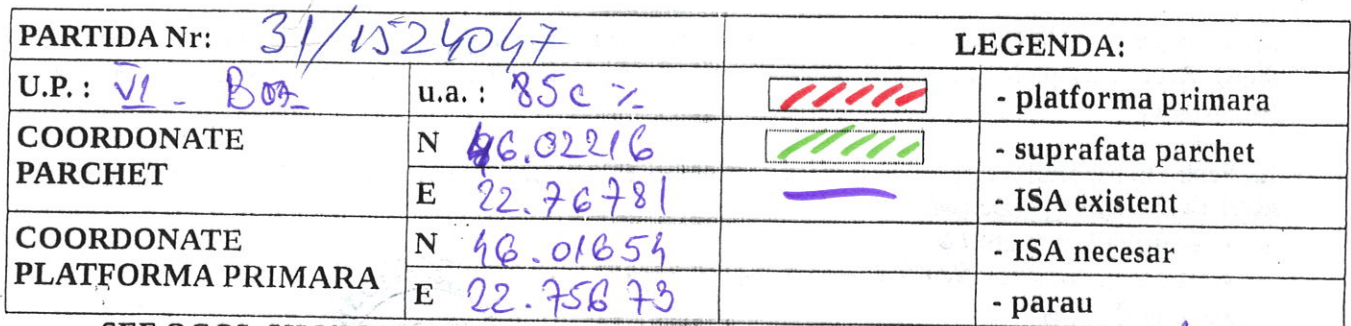 PARTIDA Nr: 31/1524047
LEGENDA:
U.P. : VI - Boz
u.a. : 85c %
- platforma primara
COORDONATE
PARCHET
N 46.02216
- suprafata parchet
E 22.76781
- ISA existent
COORDONATE
PLATFORMA PRIMARA
N 46.01654
- ISA necesar
E 22.75673
- parau